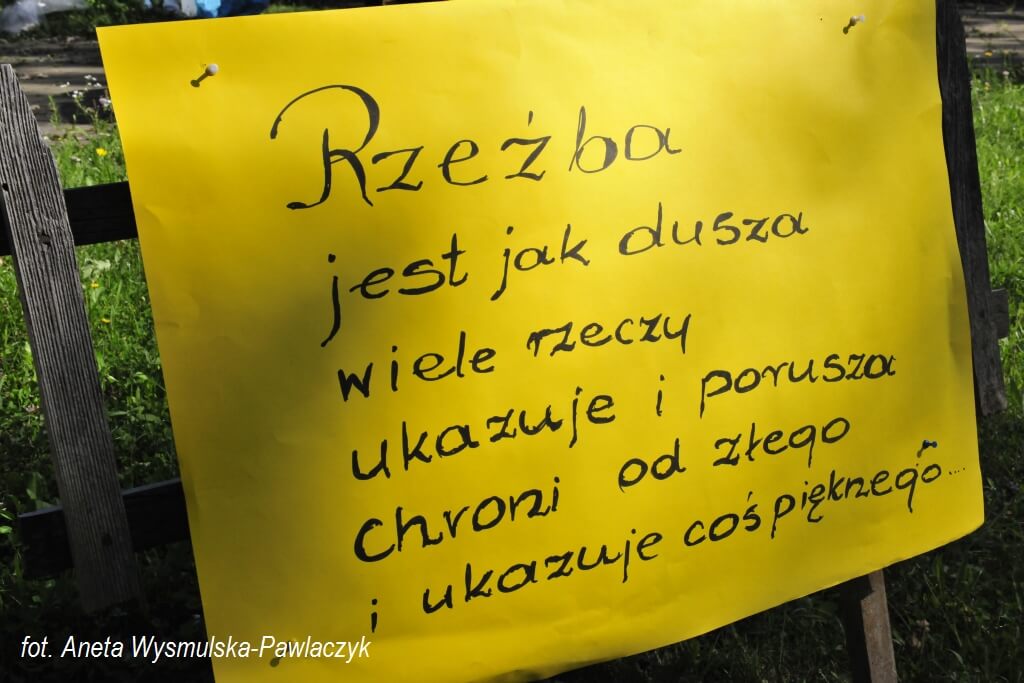 Rzeźba
jest jak dusza
wiele rzeczy
ukazuje i porusza
chroni od złego
i ukazuje coś pięknego....
fot. Aneta Wysmulska-Pawlaczyk